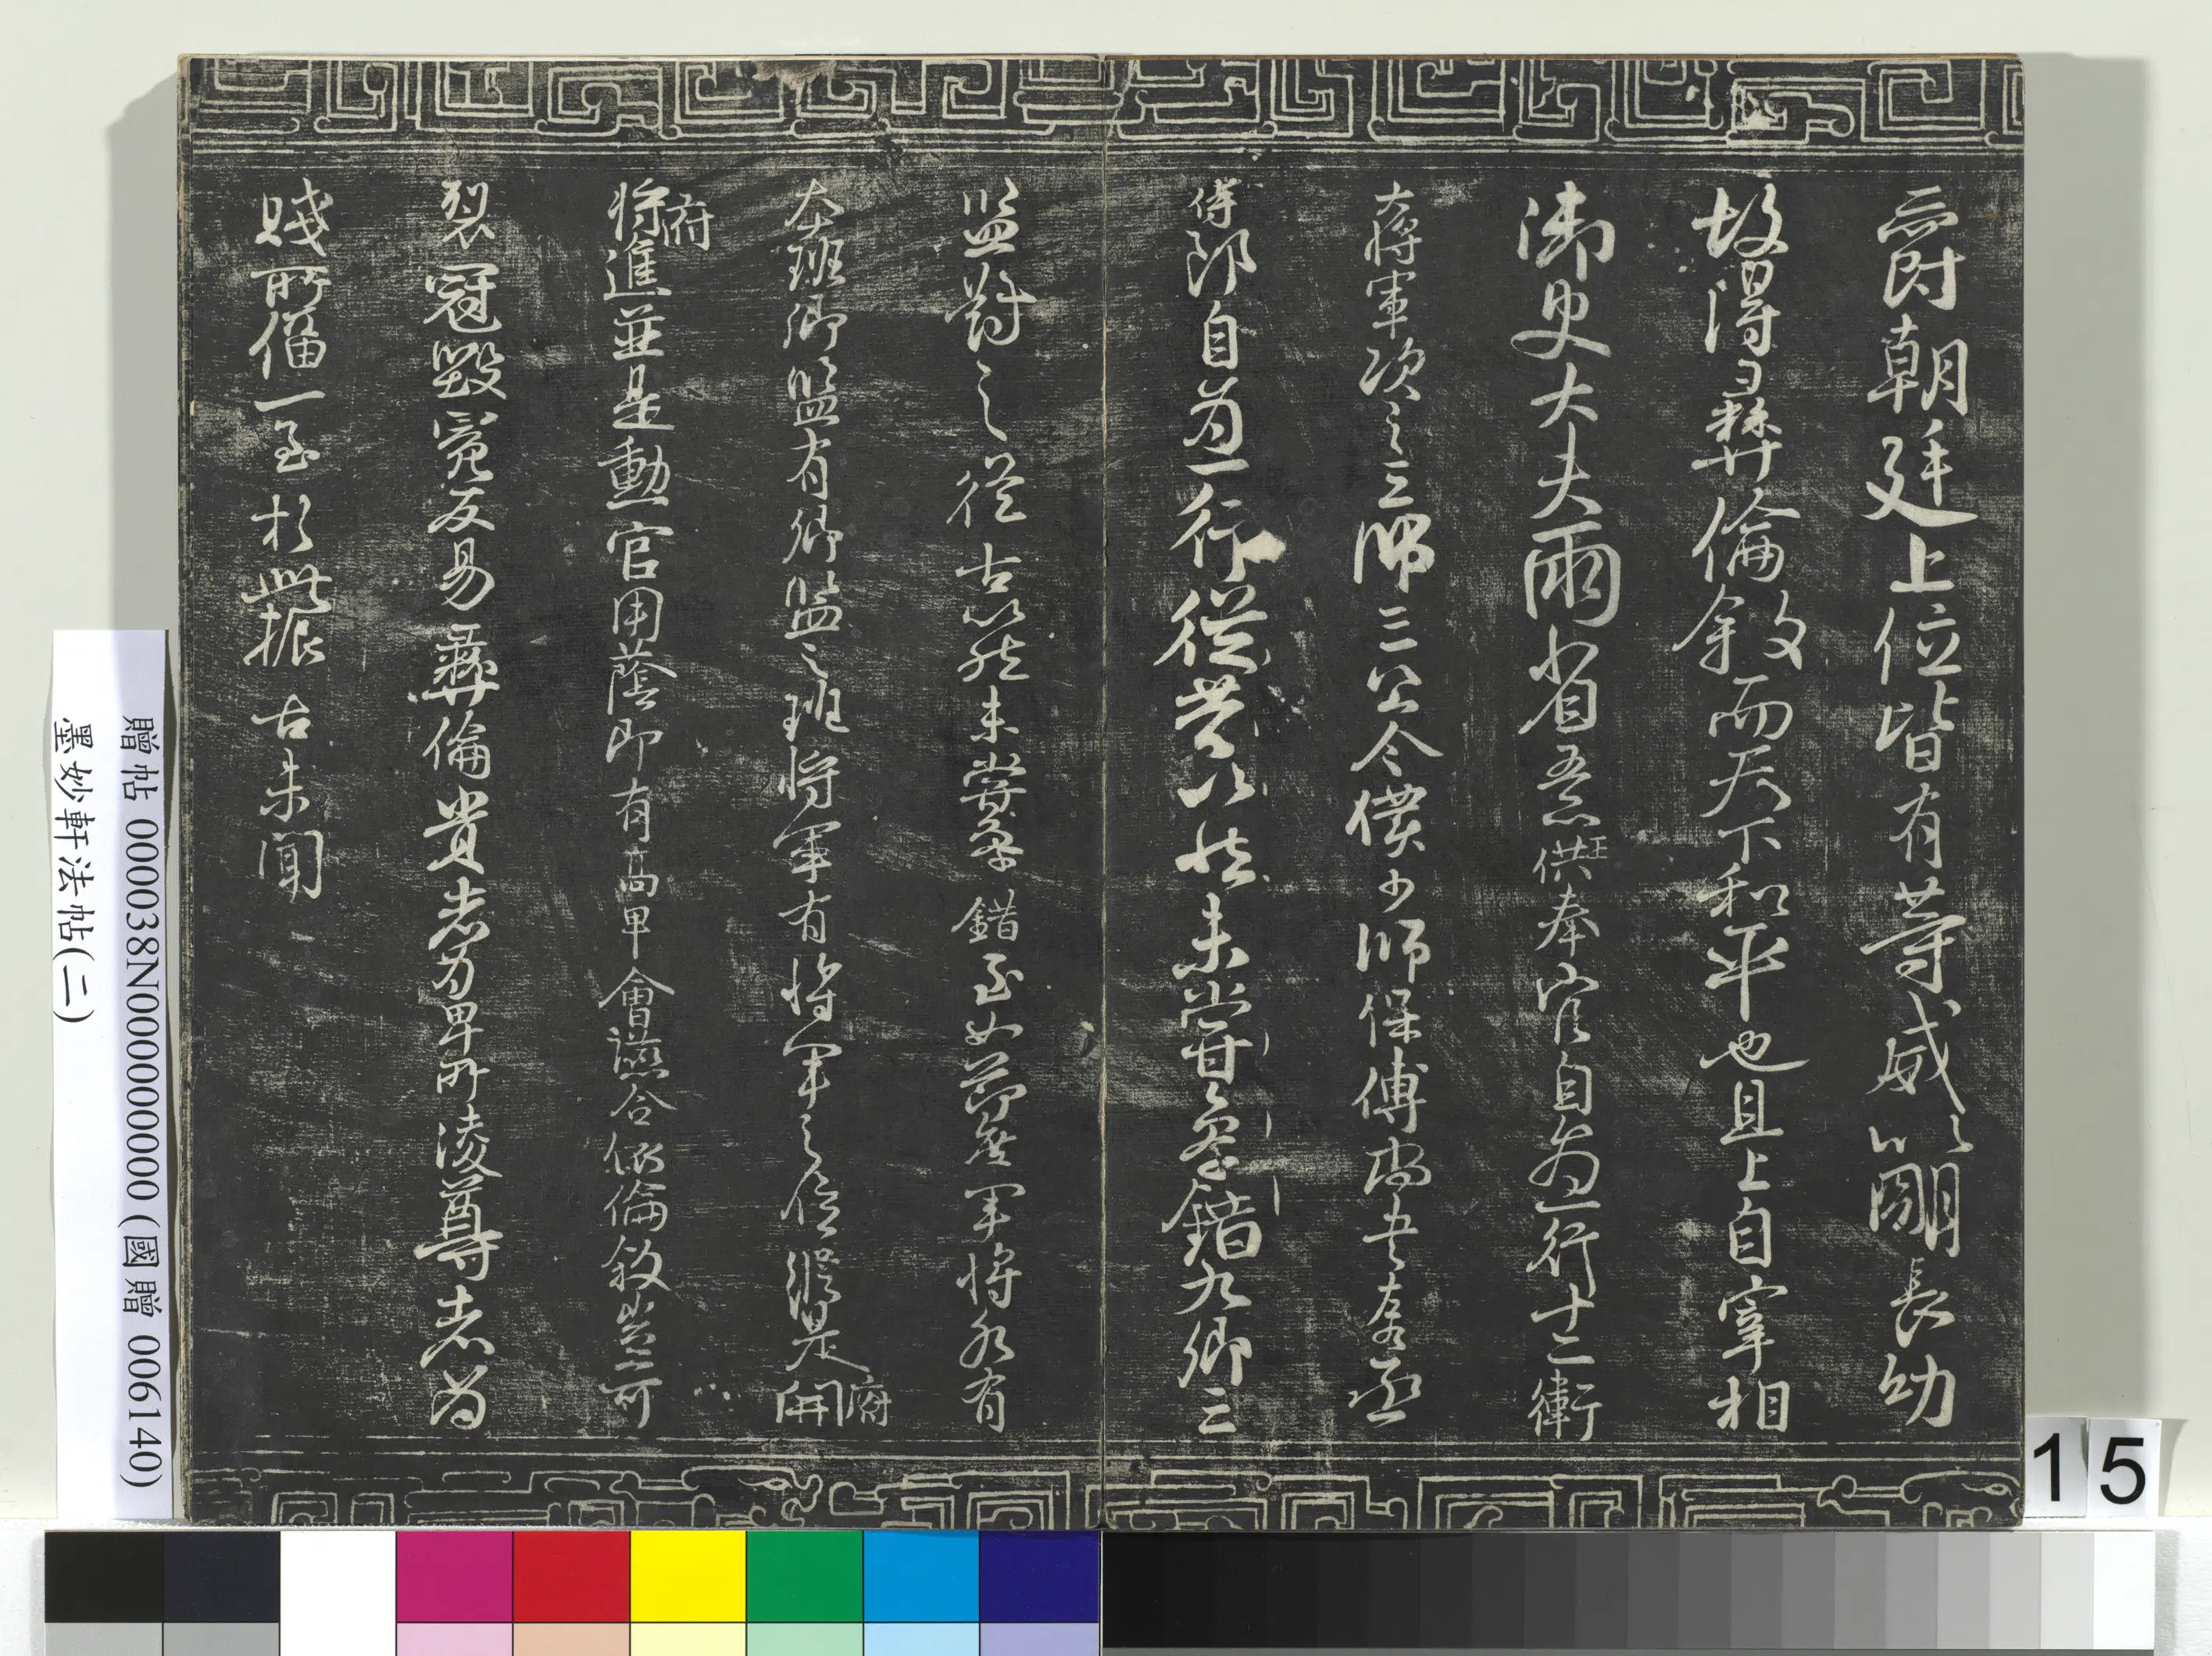 爵朝廷上位皆有等威以明長幼
故得彝倫敘而天下和平也且上自宰相
御史大夫兩省五品供奉官自為一行十二衛
大將軍次之三師三公令僕少師保傅尚書左右丞
侍郎自為一行從古以然未嘗參錯九卿三
監對之從古以然未嘗參錯至如節度軍將各有
本班卿監有卿監之班將軍有將軍之位縱是開府
府特進並是勳官用蔭即有高卑會讌合依倫敘豈可
裂冠毀冕反易彝倫貴者為卑所凌尊者為
賤所偪一至於此振古未聞
贈帖 000038N000000000 (國贈 006140)
墨妙軒法帖(二)
15